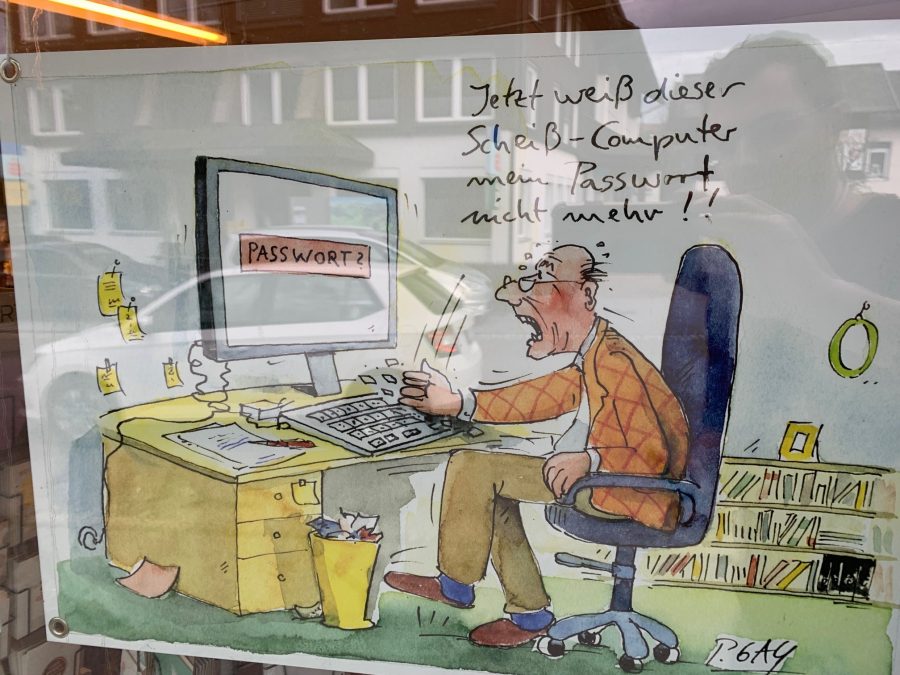 Jetzt weiß dieser
Scheiß-Computer
mein Passwort
nicht mehr!!
PASSWORT?
P. GAY